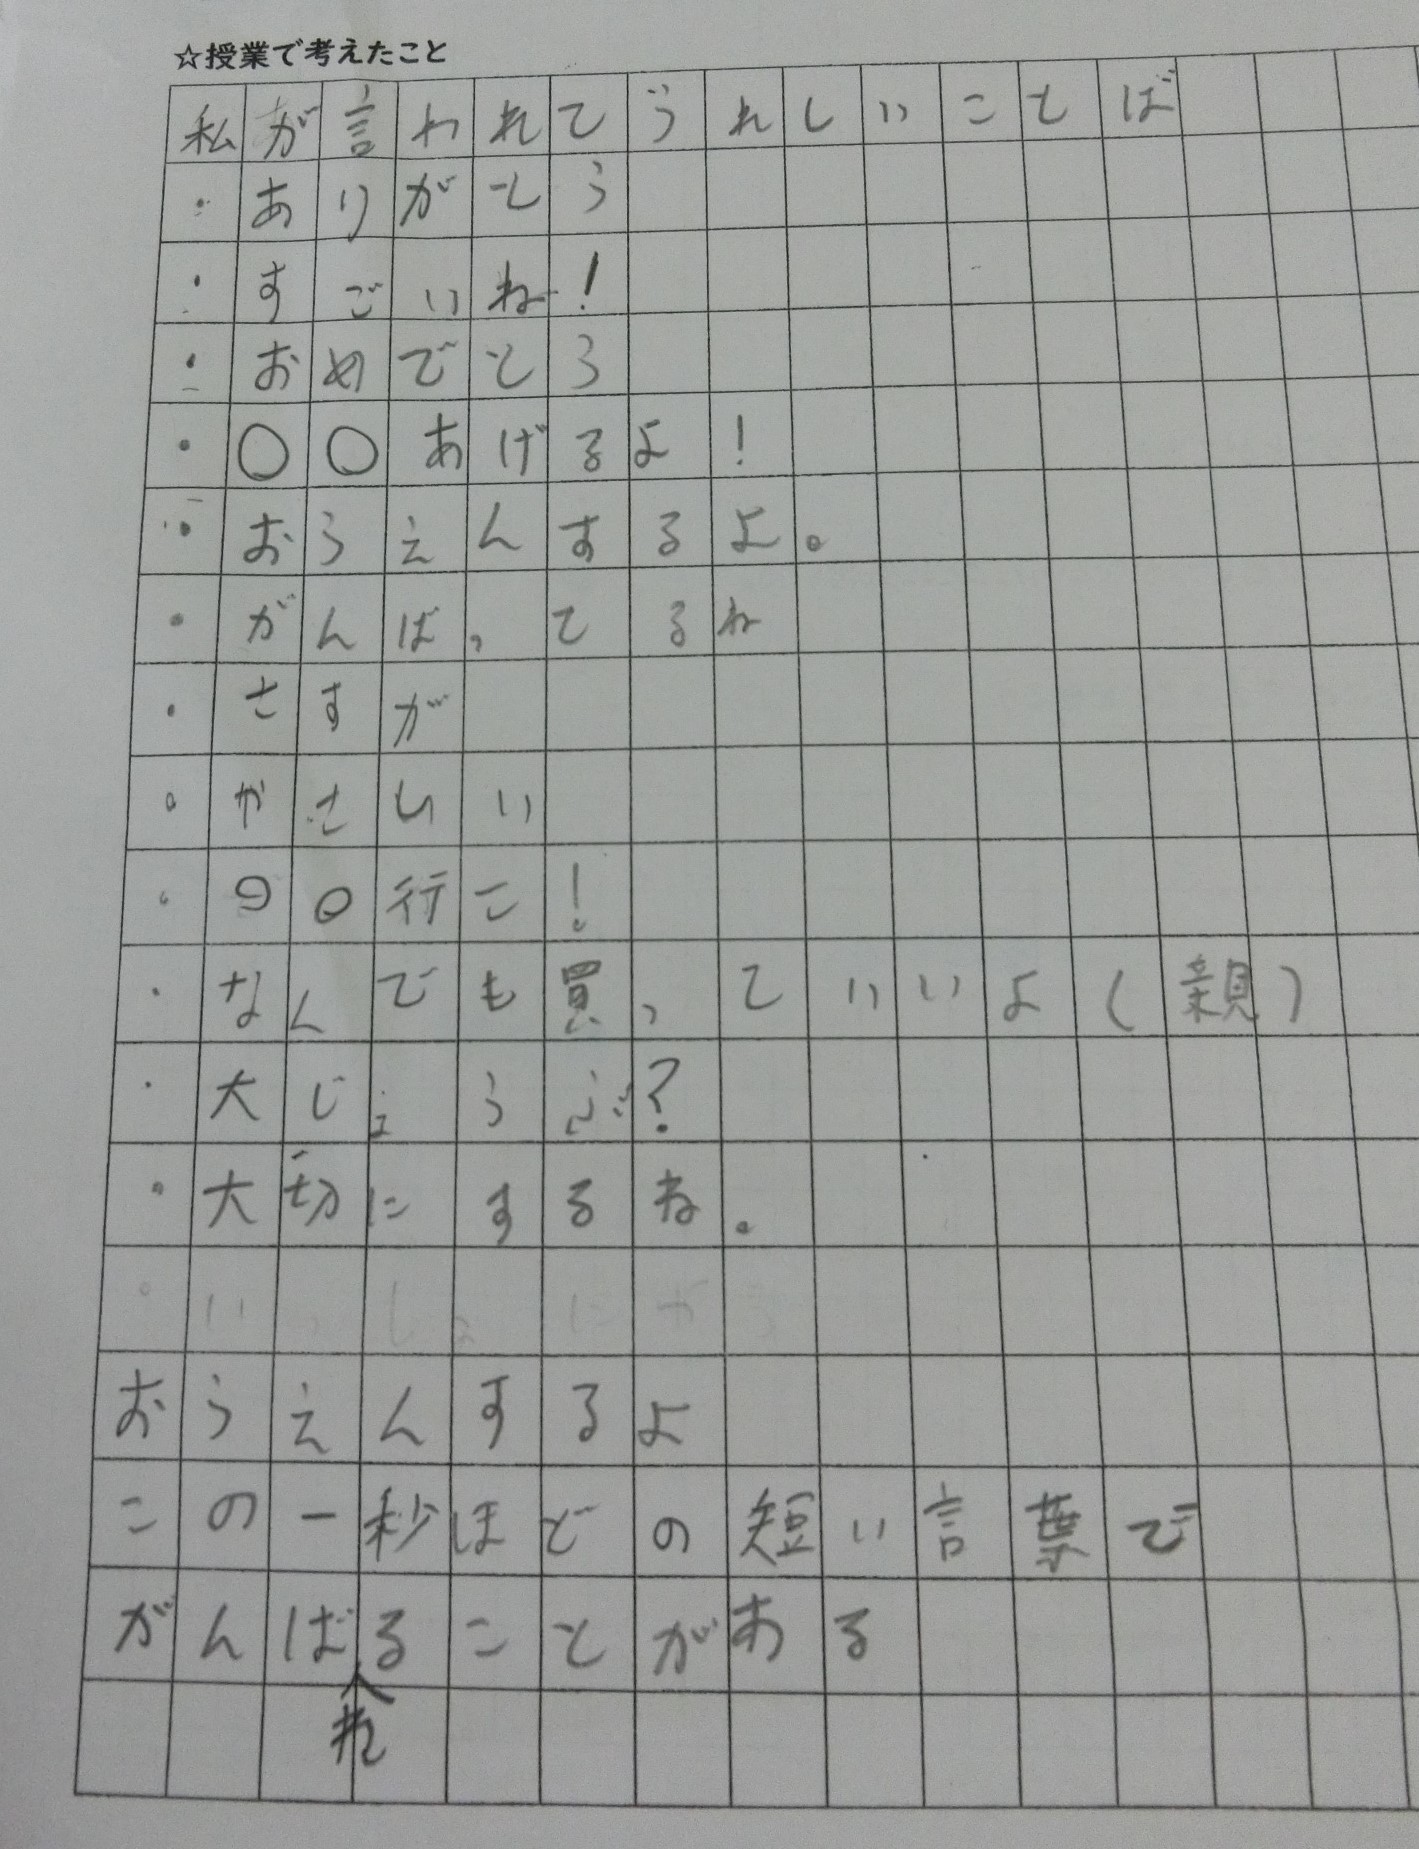 ☆授業で考えたこと
私が言われてうれしいことば
・ありがとう
・すごいね!
・おめでとう
・〇〇あげるよ!
・おうえんするよ。
・がんばってるね
・さすが
・やさしい
・〇〇行こ!
・なんでも買っていいよ(親)
・大じょうぶ?
・大切にするね。
・いっしょにやろ
おうえんするよ
この一秒ほどの短い言葉で
がんばれることがある